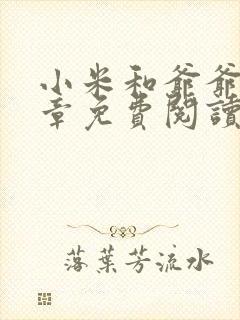 小米和爺爺
章免費閱讀
落葉芳流水